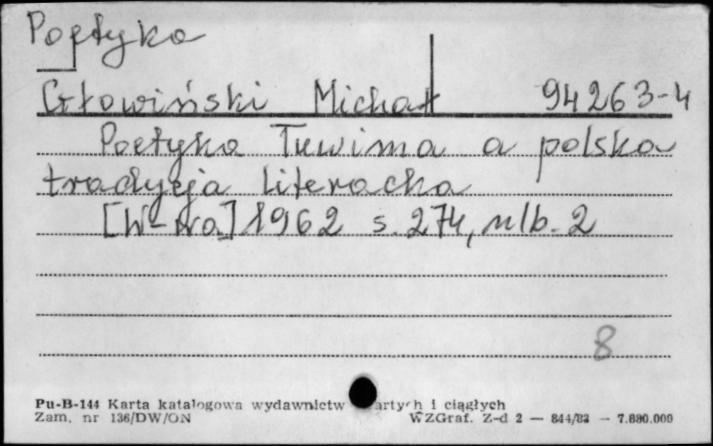 Poetyka
Głowiński Michał 94263-4
Poetyka Tuwima a polska
tradycja literacka
[W-wa] 1962 s. 274, nlb. 2
8
Pu-B-144 Karta katalogowa wydawnictw zwartych i ciągłych
Zam. nr 136/DW/ON WZGraf. Z-d 2 — 844/82 — 7.880.000